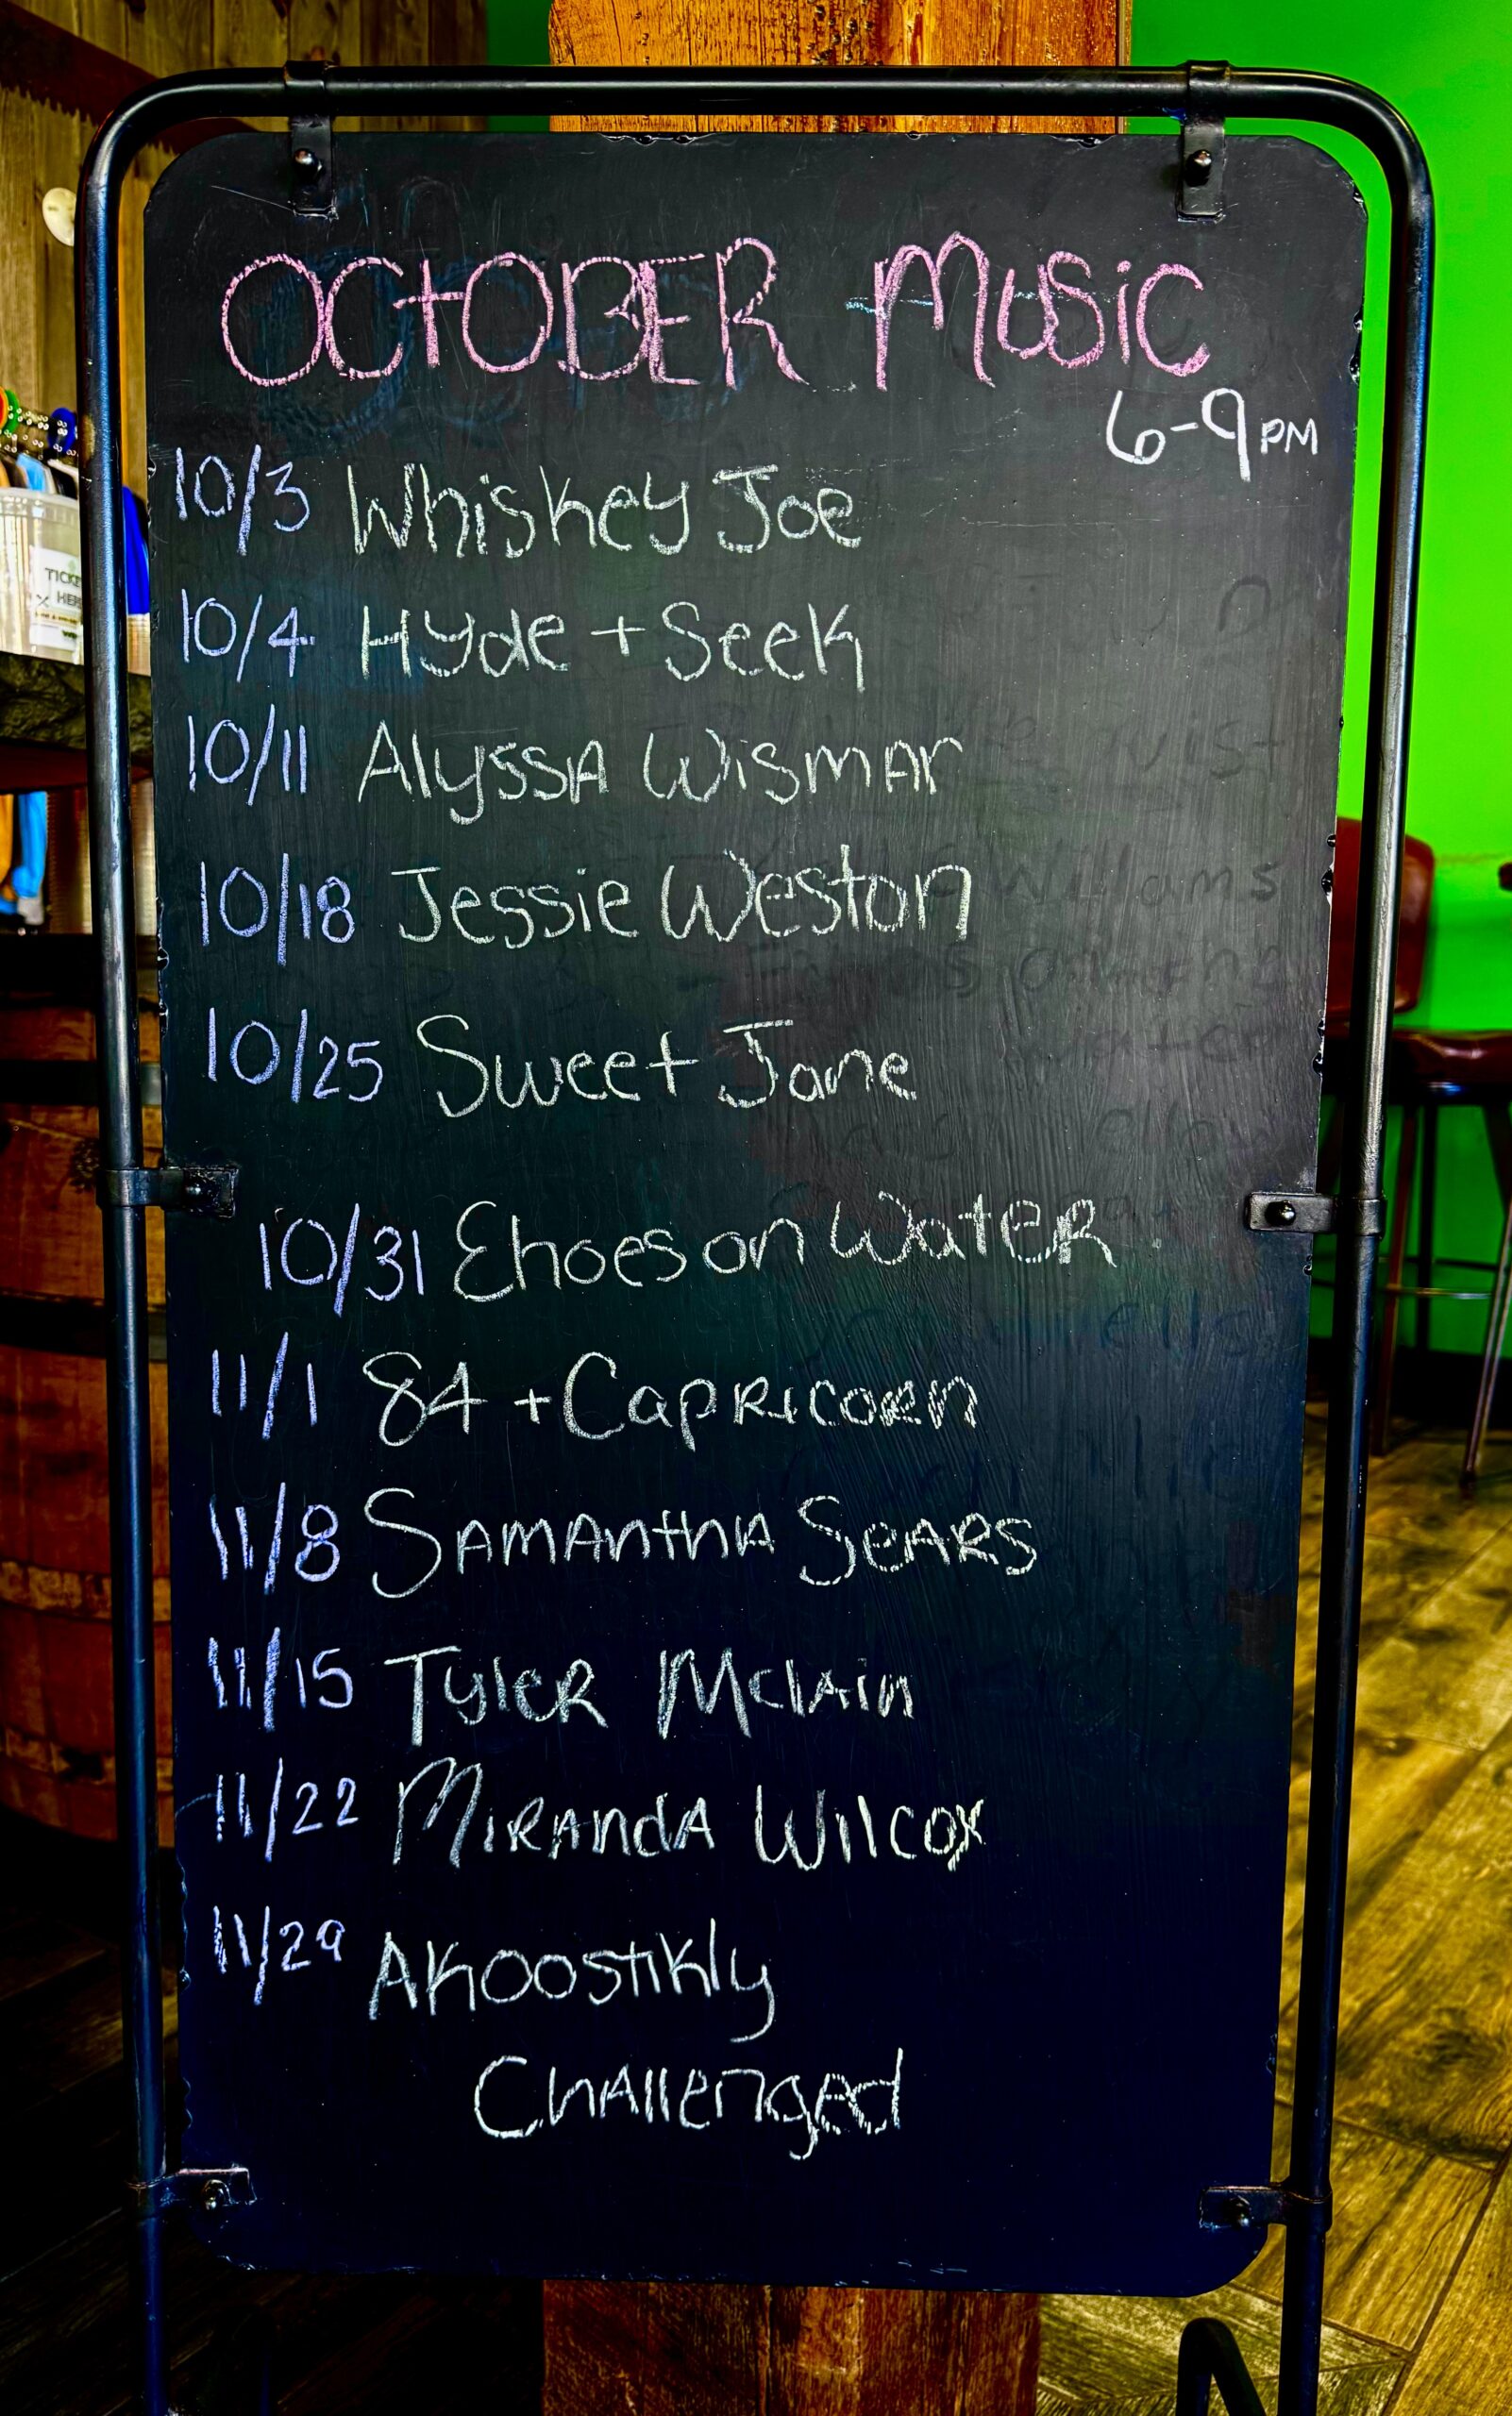 OCtOBER MUSiC
6-9PM
10/3 Whiskey Joe
10/4 Hyde + Seek
10/11 AlyssA WismAr
10/18 Jessie Weston
10/25 Sweet Jane
10/31 Ehoes on WatER
11/1 84 + CapRicoRn
11/8 SAMAnthA SeARS
11/15 TyleR MclAin
11/22 MiRAndA Wilcox
11/29 AKoostiKly
ChAllenged
TICKE
HER